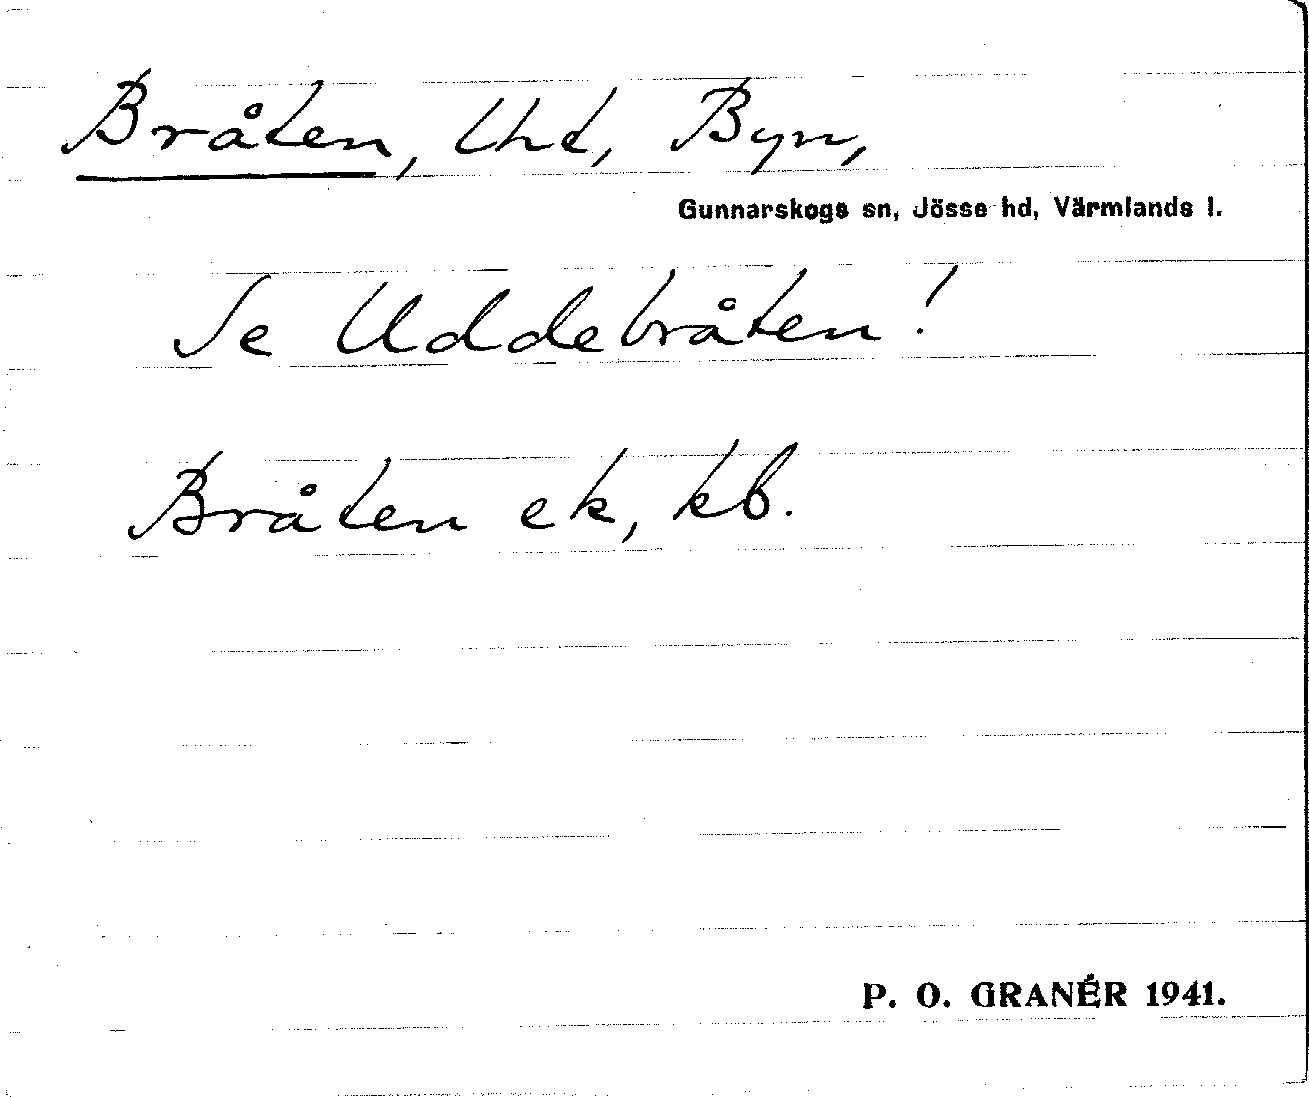 Bråten, lht, Byn,
Gunnarskogs sn, Jösse hd, Värmlands l.
Se Uddebråten!
Bråten ek, kb.
P. O. GRANÉR 1941.